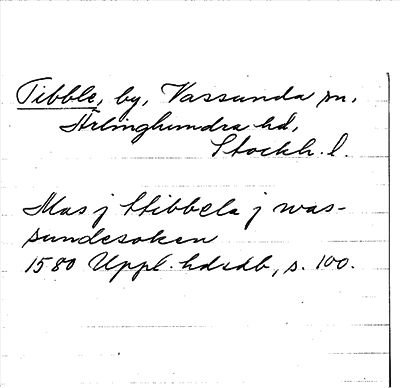 Tibble, by, Vassunda sn,
Ärlinghundra hd,
Stockh. l.
Mas j ttibbela j was-
sundesoken
1580 Uppl. hdsdb, s. 100.